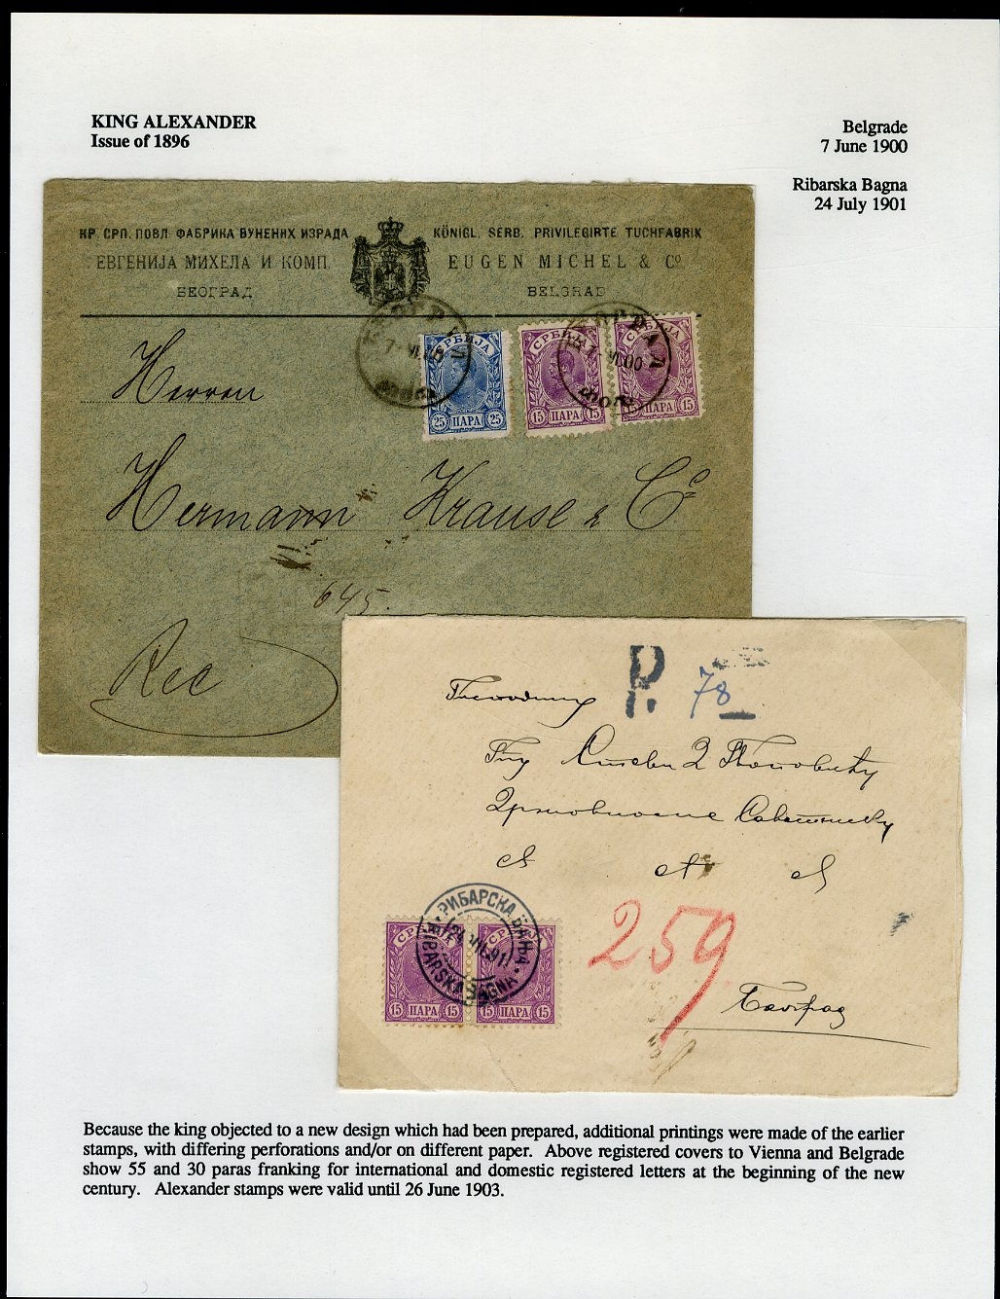 KING ALEXANDER
Issue of 1896
Belgrade
7 June 1900
Ribarska Bagna
24 July 1901
КР. СРП. ПОВЛ. ФАБРИКА ВУНЕНИХ ИЗРАДА
ЕВГЕНИЈА МИХЕЛА И КОМП.
БЕОГРАД
KÖNIGL. SERB. PRIVILEGIRTE TUCHFABRIK
EUGEN MICHEL & Cº
BELGRAD
СРБИЈА
25 ПАРА 25
СРБИЈА
15 ПАРА 15
ПАРА 15
Herren
Hermann Krause & Cº
645.
Rec
R.
78
Господину
Поповићу
259
Београд
РИБАРСКА БАЊА
RIBARSKA BAGNA
15 ПАРА 15
15 ПАРА 15
Because the king objected to a new design which had been prepared, additional printings were made of the earlier
stamps, with differing perforations and/or on different paper. Above registered covers to Vienna and Belgrade
show 55 and 30 paras franking for international and domestic registered letters at the beginning of the new
century. Alexander stamps were valid until 26 June 1903.